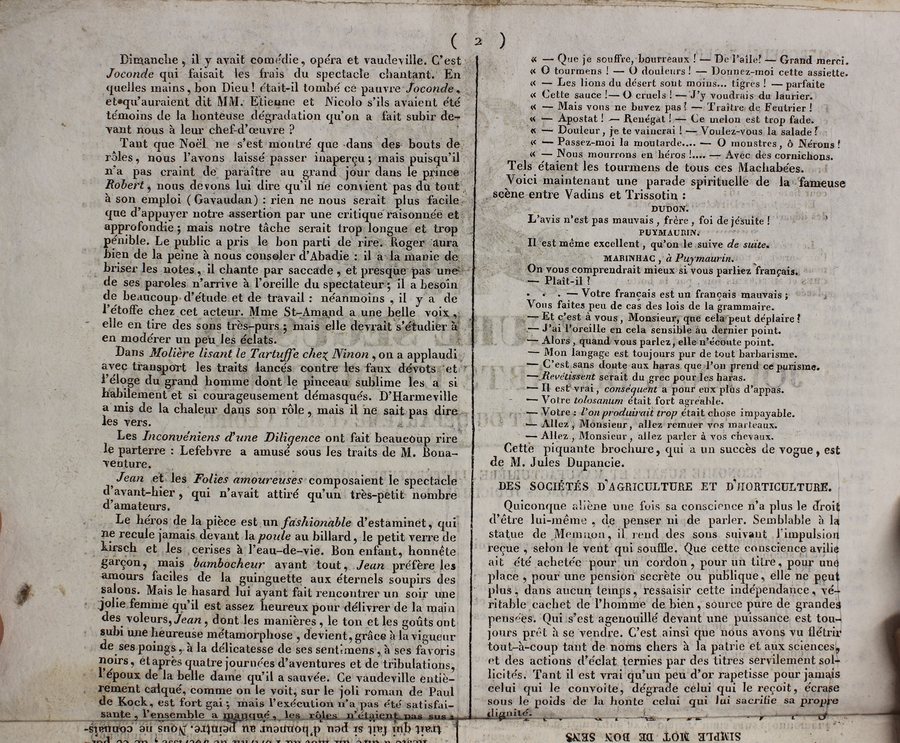 ( 2 )
Dimanche, il y avait comédie, opéra et vaudeville. C'est
Joconde qui faisait les frais du spectacle chantant. En
quelles mains, bon Dieu ! était-il tombé ce pauvre Joconde,
et qu'auraient dit MM. Etienne et Nicolo s'ils avaient été
témoins de la honteuse dégradation qu'on a fait subir de-
vant nous à leur chef-d'œuvre ?
Tant que Noël ne s'est montré que dans des bouts de
rôles, nous l'avons laissé passer inaperçu ; mais puisqu'il
n'a pas craint de paraître au grand jour dans le prince
Robert, nous devons lui dire qu'il ne convient pas du tout
à son emploi (Gavaudan) : rien ne nous serait plus facile
que d'appuyer notre assertion par une critique raisonnée et
approfondie ; mais notre tâche serait trop longue et trop
pénible. Le public a pris le bon parti de rire. Roger aura
bien de la peine à nous consoler d'Abadie : il a la manie de
briser les notes, il chante par saccade, et presque pas une
de ses paroles n'arrive à l'oreille du spectateur ; il a besoin
de beaucoup d'étude et de travail : néanmoins, il y a de
l'étoffe chez cet acteur. Mme St-Amand a une belle voix,
elle en tire des sons très-purs ; mais elle devrait s'étudier à
en modérer un peu les éclats.
Dans Molière lisant le Tartuffe chez Ninon, on a applaudi
avec transport les traits lancés contre les faux dévots et
l'éloge du grand homme dont le pinceau sublime les a si
habilement et si courageusement démasqués. D'Harmeville
a mis de la chaleur dans son rôle, mais il ne sait pas dire
les vers.
Les Inconvéniens d'une Diligence ont fait beaucoup rire
le parterre : Lefebvre a amusé sous les traits de M. Bona-
venture.
Jean et les Folies amoureuses composaient le spectacle
d'avant-hier, qui n'avait attiré qu'un très-petit nombre
d'amateurs.
Le héros de la pièce est un fashionable d'estaminet, qui
ne recule jamais devant la poule au billard, le petit verre de
kirsch et les cerises à l'eau-de-vie. Bon enfant, honnête
garçon, mais bambocheur avant tout, Jean préfère les
amours faciles de la guinguette aux éternels soupirs des
salons. Mais le hasard lui ayant fait rencontrer un soir une
jolie femme qu'il est assez heureux pour délivrer de la main
des voleurs, Jean, dont les manières, le ton et les goûts ont
subi une heureuse métamorphose, devient, grâce à la vigueur
de ses poings, à la délicatesse de ses sentimens, à ses favoris
noirs, et après quatre journées d'aventures et de tribulations,
l'époux de la belle dame qu'il a sauvée. Ce vaudeville entiè-
rement calqué, comme on le voit, sur le joli roman de Paul
de Kock, est fort gai ; mais l'exécution n'a pas été satisfai-
sante, l'ensemble a manqué, les rôles n'étaient pas sus ;
« — Que je souffre, bourreaux ! — De l'aile! — Grand merci.
« O tourmens ! — O douleurs ! — Donnez-moi cette assiette.
« — Les lions du désert sont moins... tigres ! — parfaite
« Cette sauce ! — O cruels ! — J'y voudrais du laurier.
« — Mais vous ne buvez pas ! — Traître de Feutrier !
« — Apostat ! — Renégat ! — Ce melon est trop fade.
« — Douleur, je te vaincrai ! — Voulez-vous la salade ?
« — Passez-moi la moutarde.... — O monstres, ô Nérons !
« — Nous mourrons en héros !.... — Avec des cornichons.
Tels étaient les tourmens de tous ces Machabées.
Voici maintenant une parade spirituelle de la fameuse
scène entre Vadius et Trissotin :
DUDON.
L'avis n'est pas mauvais, frère, foi de jésuite !
PUYMAURIN.
Il est même excellent, qu'on le suive de suite.
MARINHAC, à Puymaurin.
On vous comprendrait mieux si vous parliez français.
— Plaît-il !
. . . — Votre français est un français mauvais ;
Vous faites peu de cas des lois de la grammaire.
— Et c'est à vous, Monsieur, que cela peut déplaire ?
— J'ai l'oreille en cela sensible au dernier point.
— Alors, quand vous parlez, elle n'écoute point.
— Mon langage est toujours pur de tout barbarisme.
— C'est sans doute aux haras que l'on prend ce purisme.
— Revétissent serait du grec pour les haras.
— Il est vrai, conséquent a pour eux plus d'appas.
— Votre tolosanum était fort agréable.
— Votre : l'on produirait trop était chose impayable.
— Allez, Monsieur, allez remuer vos marteaux.
— Allez, Monsieur, allez parler à vos chevaux.
Cette piquante brochure, qui a un succès de vogue, est
de M. Jules Dupancie.
DES SOCIÉTÉS D'AGRICULTURE ET D'HORTICULTURE.
Quiconque aliène une fois sa conscience n'a plus le droit
d'être lui-même, de penser ni de parler. Semblable à la
statue de Memnon, il rend des sons suivant l'impulsion
reçue, selon le vent qui souffle. Que cette conscience avilie
ait été achetée pour un cordon, pour un titre, pour une
place, pour une pension secrète ou publique, elle ne peut
plus, dans aucun temps, ressaisir cette indépendance, vé-
ritable cachet de l'homme de bien, source pure de grandes
pensées. Qui s'est agenouillé devant une puissance est tou-
jours prêt à se vendre. C'est ainsi que nous avons vu flétrir
tout-à-coup tant de noms chers à la patrie et aux sciences,
et des actions d'éclat ternies par des titres servilement sol-
licités. Tant il est vrai qu'un peu d'or rapetisse pour jamais
celui qui le convoite, dégrade celui qui le reçoit, écrase
sous le poids de la honte celui qui lui sacrifie sa propre
dignité.
SIMPLE MOT DE BON SENS